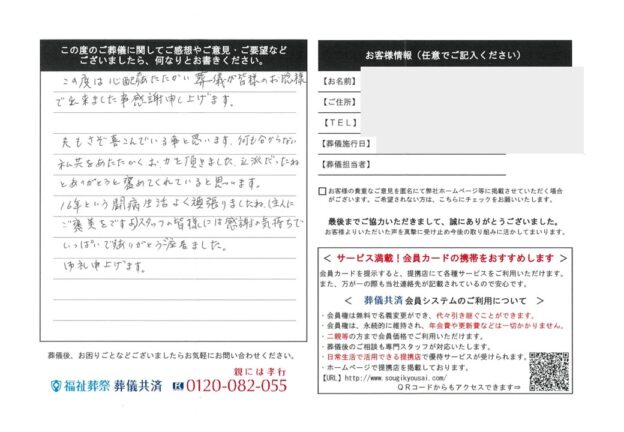 この度のご葬儀に関してご感想やご意見・ご要望など
ございましたら、何なりとお書きください。
この度は心配あたたかい葬儀が皆様のお陰様
で出来ました事感謝申し上げます。
夫もさぞ喜こんでいる事と思います。何も分からない
私共をあたたかくお力を頂きました。立派だったね
とありがとうと褒めてくれていると思います。
16年という闘病生活よく頑張りましたね。主人に
ご褒美をです。スタッフの皆様には感謝の気持ちで
いっぱいで ありがとう座居ました。
御礼申上げます。
葬儀後、お困りごとなどございましたらお気軽にお問い合わせください。
親には孝行
福祉葬祭 葬儀共済 0120-082-055
お客様情報(任意でご記入ください)
【お名前】
【ご住所】
【TEL】
【葬儀施行日】
【葬儀担当者】
お客様の貴重なご意見を匿名にて弊社ホームページ等に掲載させていただく場合
がございます。ご希望されない方は、こちらにチェックをお願いいたします。
最後までご協力いただきまして、誠にありがとうございました。
お客様よりいただいた声を真摯に受け止め今後の取り組みに活かしてまいります。
< サービス満載!会員カードの携帯をおすすめします >
会員カードを提示すると、提携店にて各種サービスをご利用いただけます。
また、万が一の際も当社連絡先が記載されているので安心です。
< 葬儀共済 会員システムのご利用について >
・会員権は無料で名義変更ができ、代々引き継ぐことができます。
・会員権は、永続的に維持され、年会費や更新費などは一切かかりません。
・二親等の方まで会員価格でご利用いただけます。
・葬儀後のご相談も専門スタッフが対応いたします。
・日常生活で活用できる提携店で優待サービスが受けられます。
・ホームページで提携店を掲載しております。
【URL】http://www.sougikyousai.com/
QRコードからもアクセスできます⇒